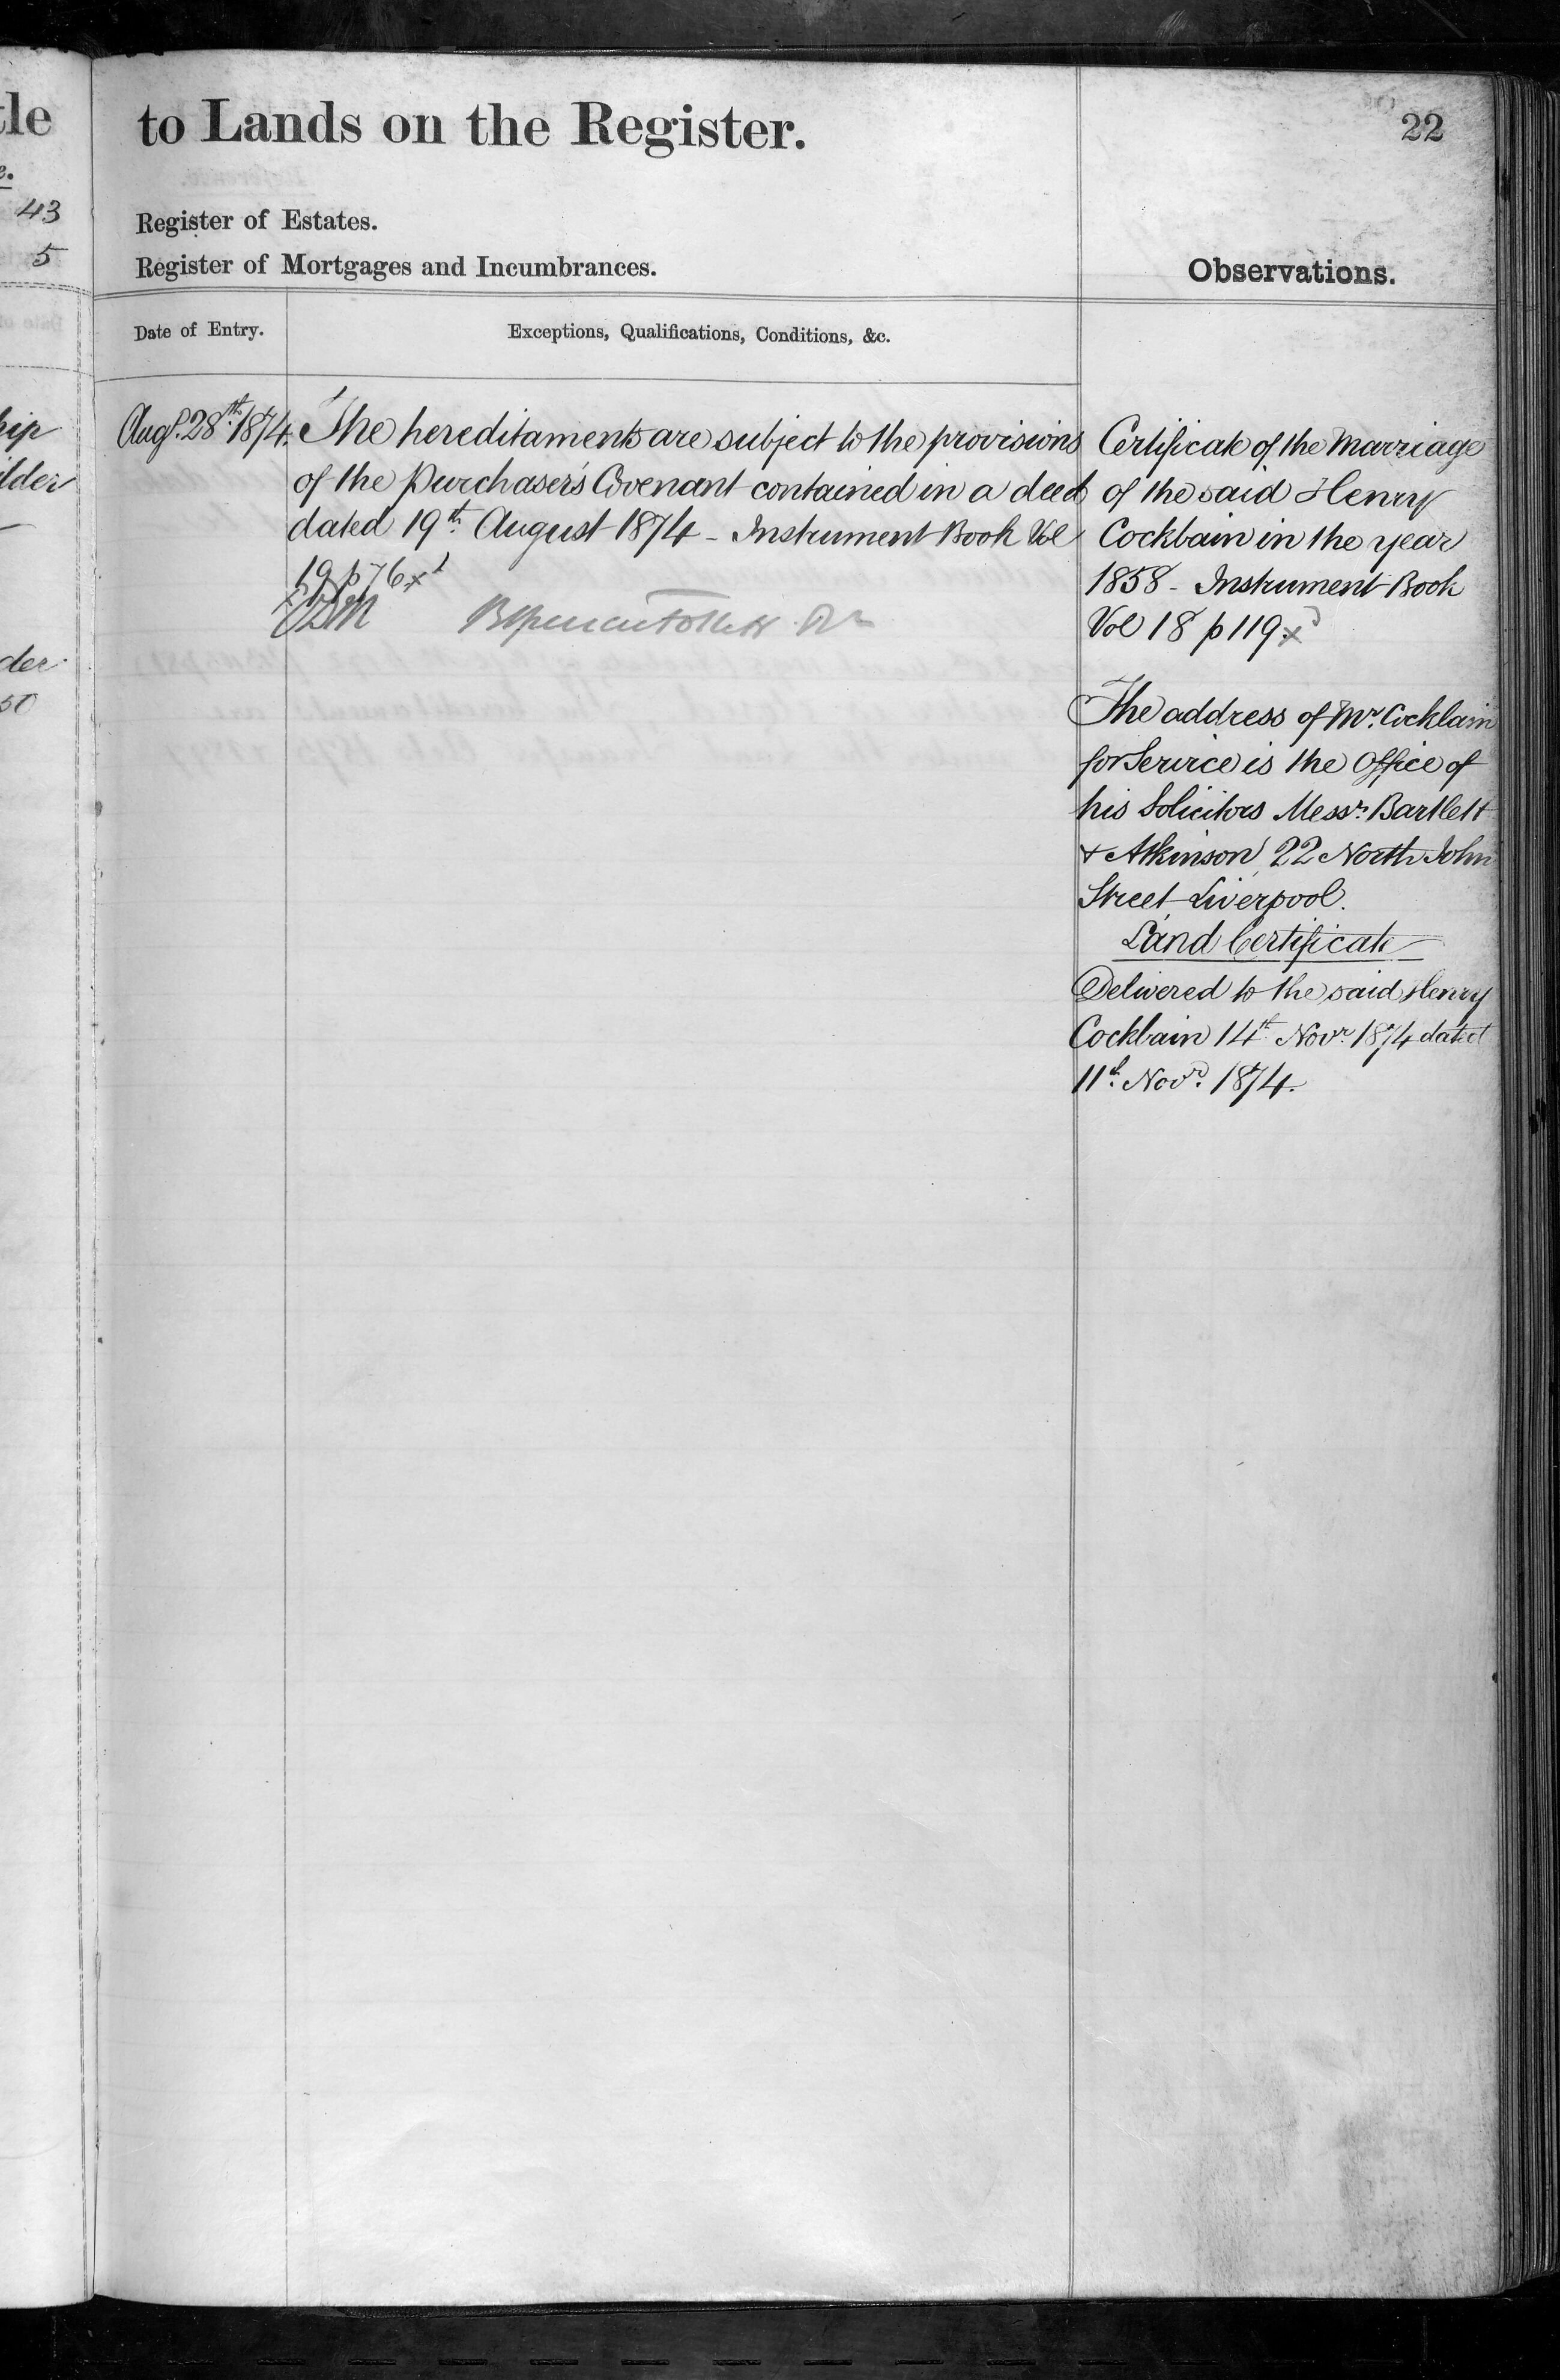 tle
to Lands on the Register.
22
e.
43
5
Register of Estates.
Register of Mortgages and Incumbrances.
Observations.
Date of Entry.
Exceptions, Qualifications, Conditions, &c.
hip
ilder
der
50
Augt. 28th. 1874.
The hereditaments are subject to the provisions
of the Purchaser's Covenant contained in a deed
dated 19th. August 1874 - Instrument Book Vol
19 p 76 x
Certificate of the Marriage
of the said Henry
Cockbain in the year
1858 - Instrument Book
Vol 18 p 119 x
The address of Mr. Cockbain
for Service is the Office of
his Solicitors Messrs. Bartlett
& Atkinson, 22 North John
Street Liverpool.
Land Certificate
Delivered to the said Henry
Cockbain 14th Novr. 1874 dated
11th. Novr. 1874.